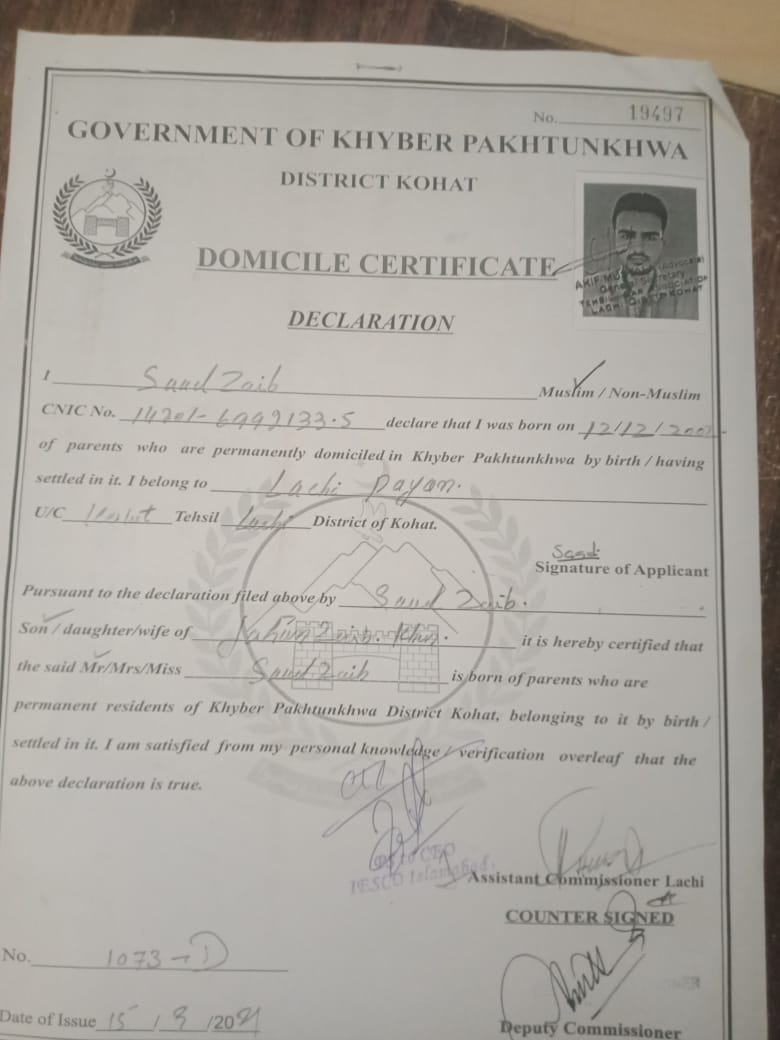 No. 19497
GOVERNMENT OF KHYBER PAKHTUNKHWA
DISTRICT KOHAT
DOMICILE CERTIFICATE
(Advocate)
General Secretary
LACHI DISTT KOHAT
DECLARATION
I Saad Zaib Muslim / Non-Muslim
CNIC No. 14201-6999133-5 declare that I was born on 12/12/200
of parents who are permanently domiciled in Khyber Pakhtunkhwa by birth / having
settled in it. I belong to Lachi Payan.
U/C Tehsil Lachi District of Kohat.
Saad
Signature of Applicant
Pursuant to the declaration filed above by Saad Zaib.
Son / daughter/wife of Zaib Khan. it is hereby certified that
the said Mr/Mrs/Miss Saad Zaib is born of parents who are
permanent residents of Khyber Pakhtunkhwa District Kohat, belonging to it by birth /
settled in it. I am satisfied from my personal knowledge / verification overleaf that the
above declaration is true.
to CEO
IESCO Islamabad.
Assistant Commissioner Lachi
COUNTER SIGNED
No. 1073-D
Date of Issue 15 / 9 /2021
Deputy Commissioner